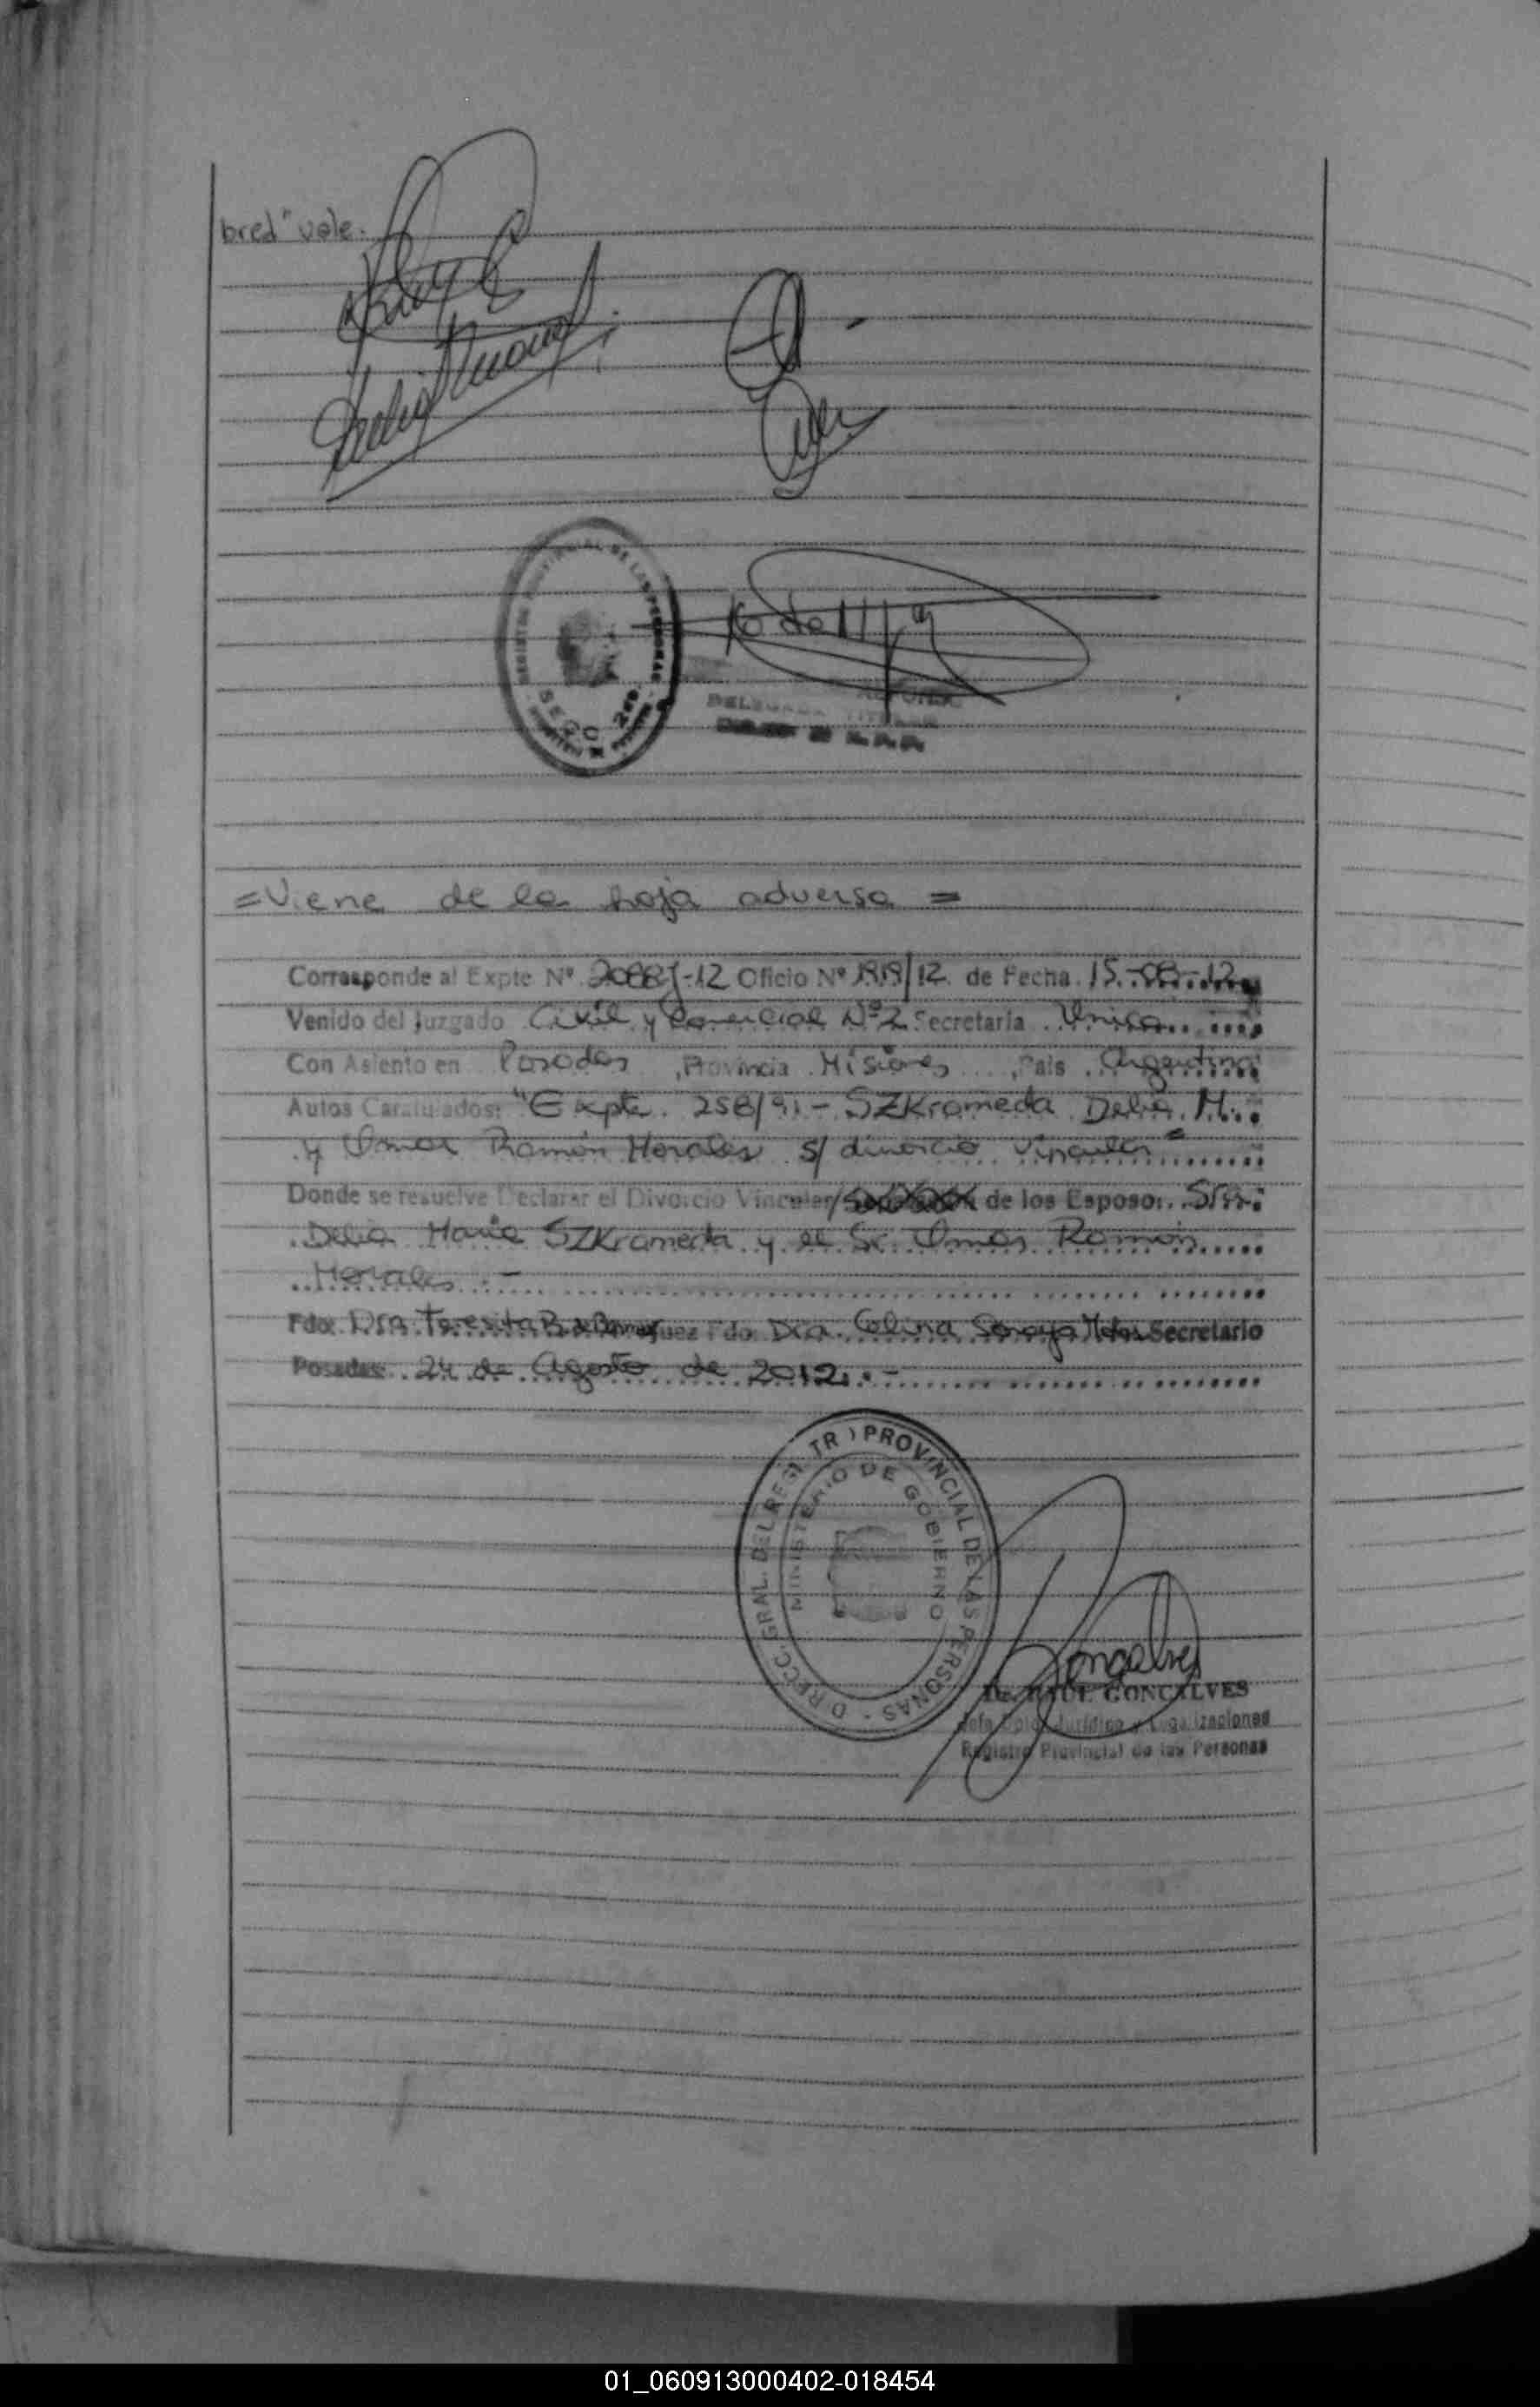 bred" vale.
= Viene de la hoja adversa =
Corresponde al Expte Nº 2088J-12 Oficio Nº 1919/12 de Fecha 15-08-12
Venido del Juzgado Civil y Comercial Nº 2 Secretaria Unica
Con Asiento en Posadas, Provincia Misiones, Pais Argentina
Autos Caratulados: "Expte. 258/91 - SZKrameda Delia M.
y Omar Ramón Morales s/ divorcio vincular"
Donde se resuelve Declarar el Divorcio Vincular/ de los Esposo: Sra.
Delia Maria SZKrameda y el Sr. Omar Ramón
Morales.-
Fdo: Dra Teresita B. Juez Fdo: Dra. Celina Soraya Secretario
Posadas 24 de Agosto de 2012.-
DIRECC. GRAL. DEL REGISTRO PROVINCIAL DE LAS PERSONAS
MINISTERIO DE GOBIERNO
Dr. RAUL GONCALVES
Jefe Dpto. Jurídico y Legalizaciones
Registro Provincial de las Personas
01_060913000402-018454